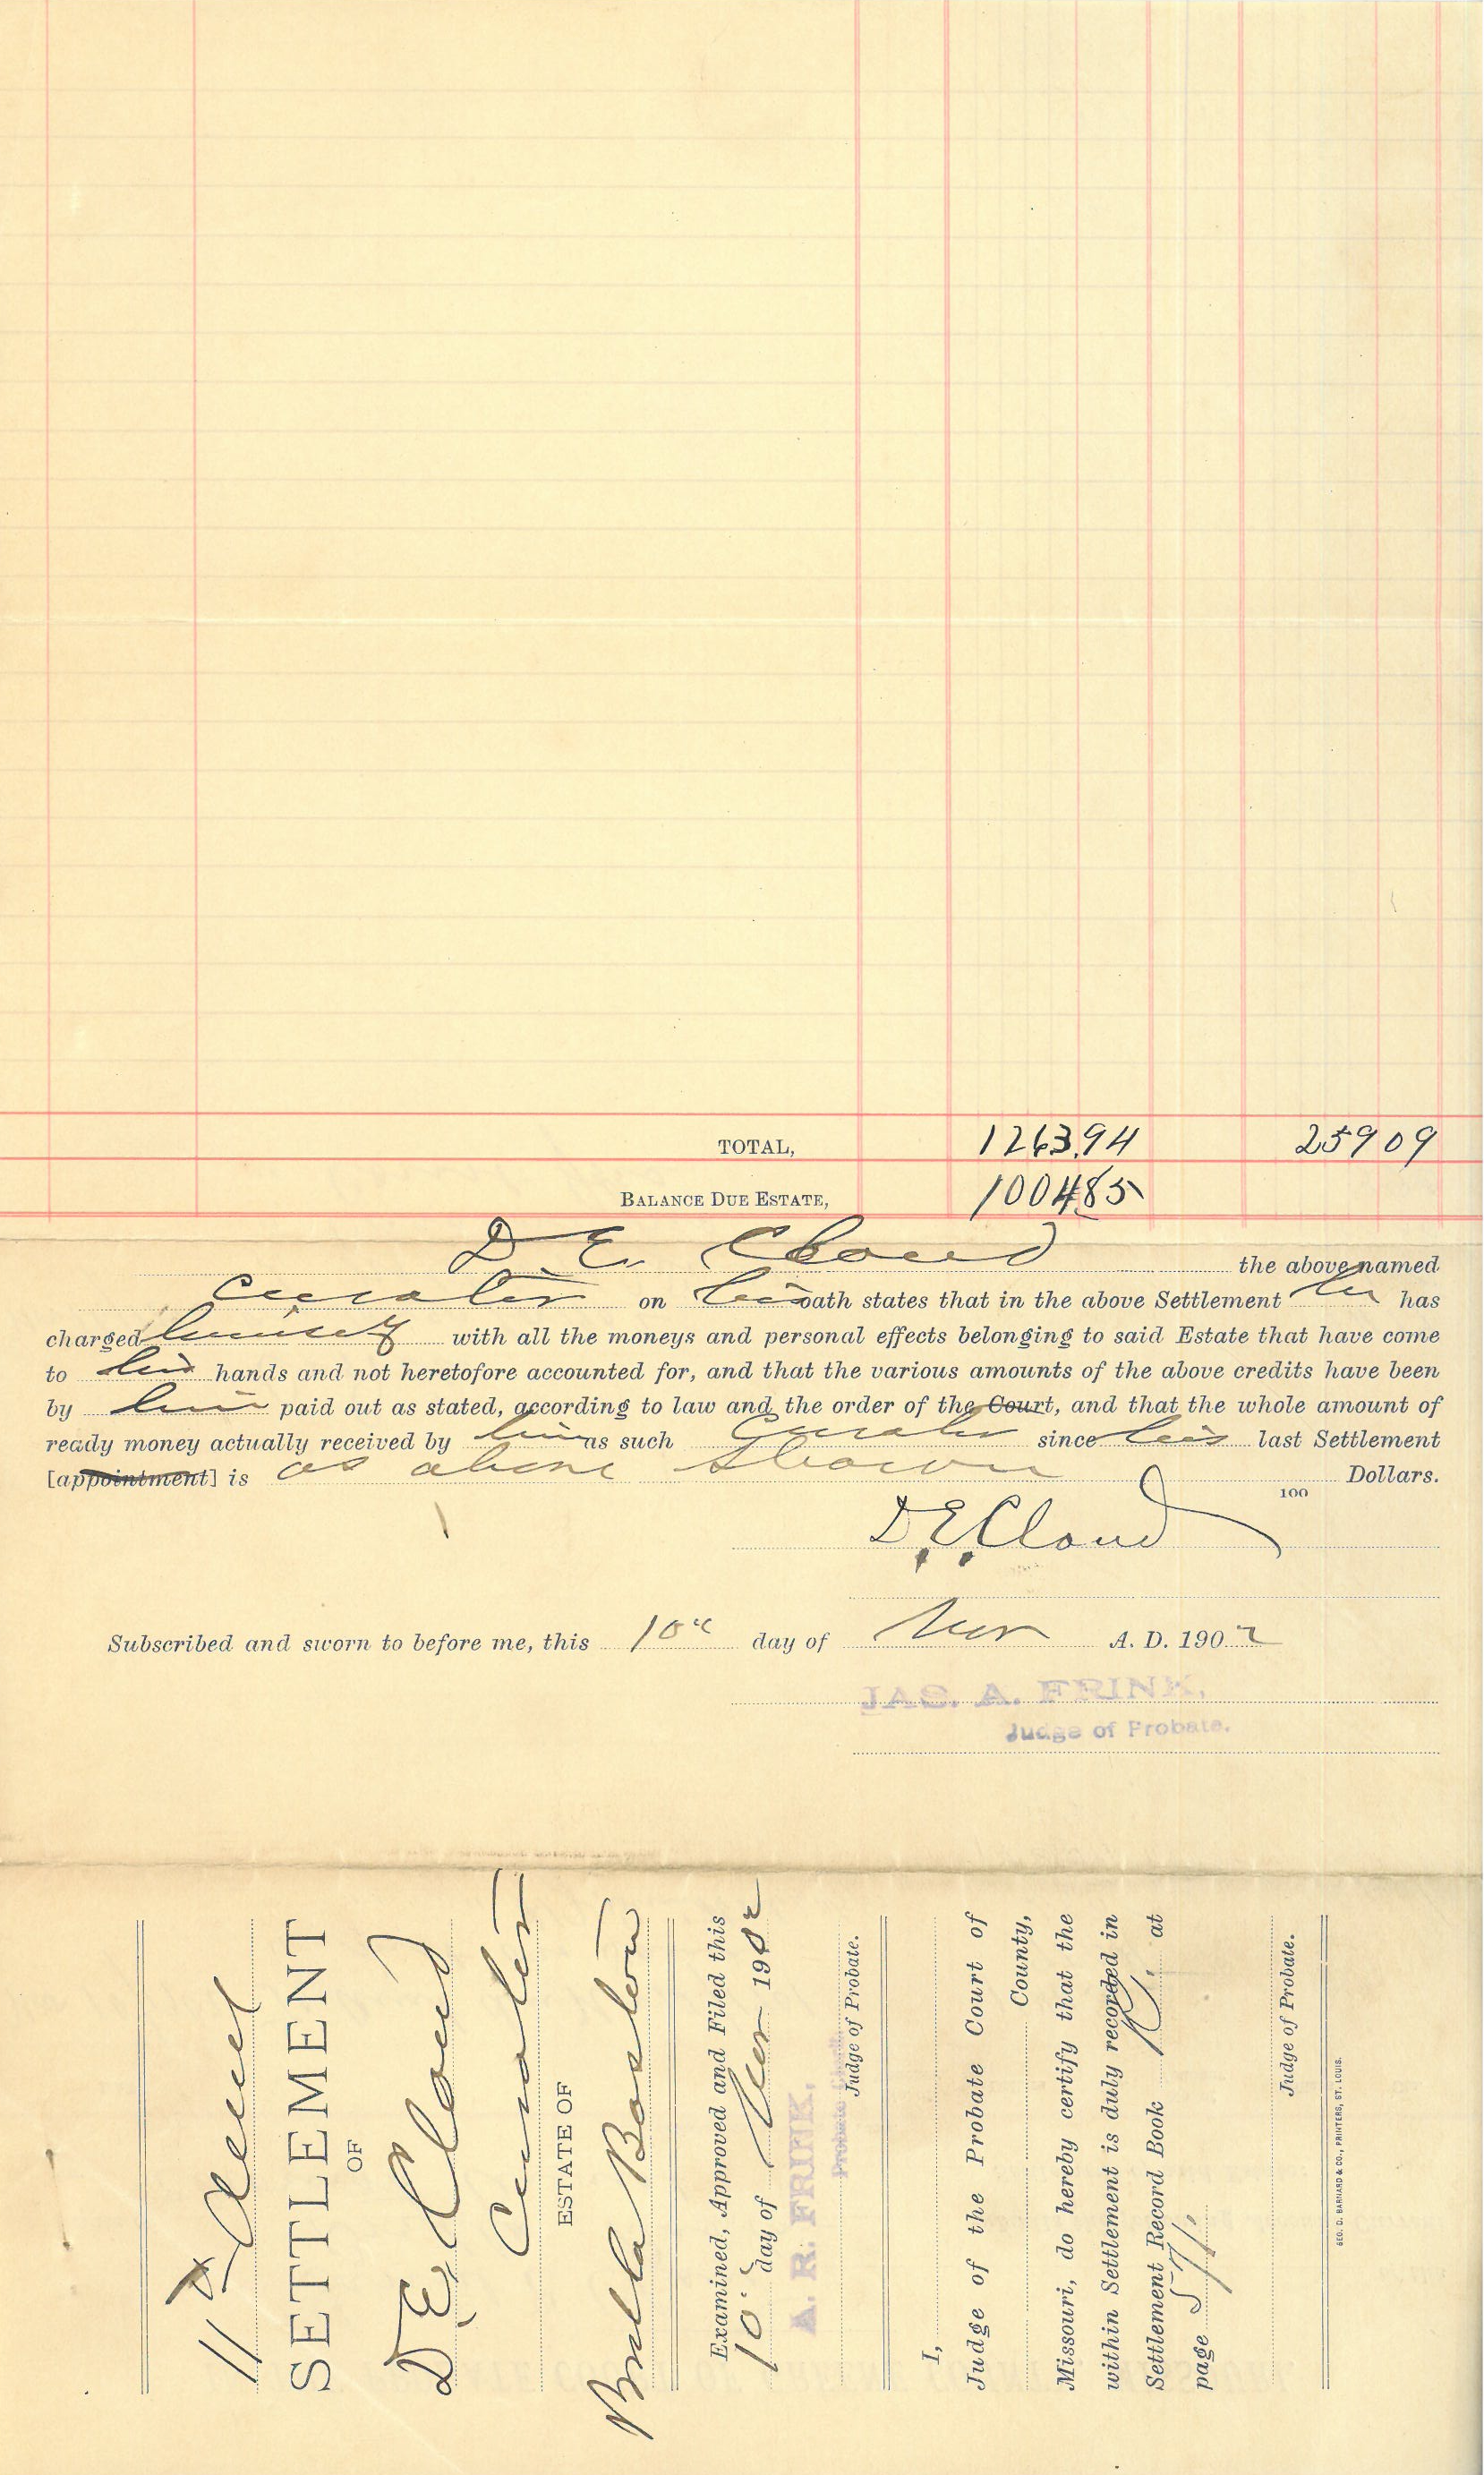 TOTAL, 1263.94 259 09
BALANCE DUE ESTATE, 1004 85
D. E. Cloud the above named
Curator on his oath states that in the above Settlement he has
charged himself with all the moneys and personal effects belonging to said Estate that have come
to his hands and not heretofore accounted for, and that the various amounts of the above credits have been
by him paid out as stated, according to law and the order of the Court, and that the whole amount of
ready money actually received by him as such Curator since his last Settlement
[appointment] is as above shown Dollars.
100
D. E. Cloud
Subscribed and sworn to before me, this 10" day of Nov A. D. 1902
JAS. A. FRINK,
Judge of Probate.
11
SETTLEMENT
OF
D. E. Cloud
Curator
ESTATE OF
Examined, Approved and Filed this
10" day of Nov 1902
A. R. FRINK,
Probate
Judge of Probate.
I,
Judge of the Probate Court of
County,
Missouri, do hereby certify that the
within Settlement is duly recorded in
Settlement Record Book K, at
page 571.
Judge of Probate.
GEO. D. BARNARD & CO., PRINTERS, ST. LOUIS.